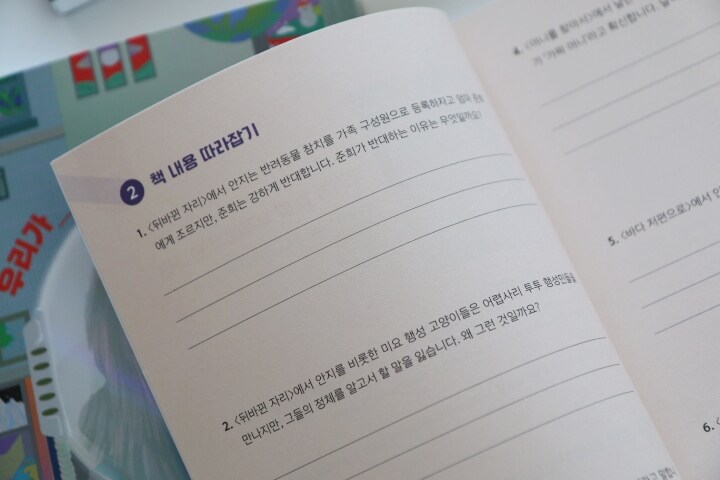 우리가
2 책 내용 따라잡기
1. <뒤바뀐 자리>에서 안지는 반려동물 참치를 가족 구성원으로 등록하자고 엄마
에게 조르지만, 준희는 강하게 반대합니다. 준희가 반대하는 이유는 무엇일까요?
2. <뒤바뀐 자리>에서 안지를 비롯한 미요 행성 고양이들은 어렵사리 투투 행성인들을
만나지만, 그들의 정체를 알고서 할 말을 잃습니다. 왜 그런 것일까요?
4. <마니를 찾아서>에서
가 '가짜 마니'라고 확신합니다.
5. <바다 저편으로>에서
6.